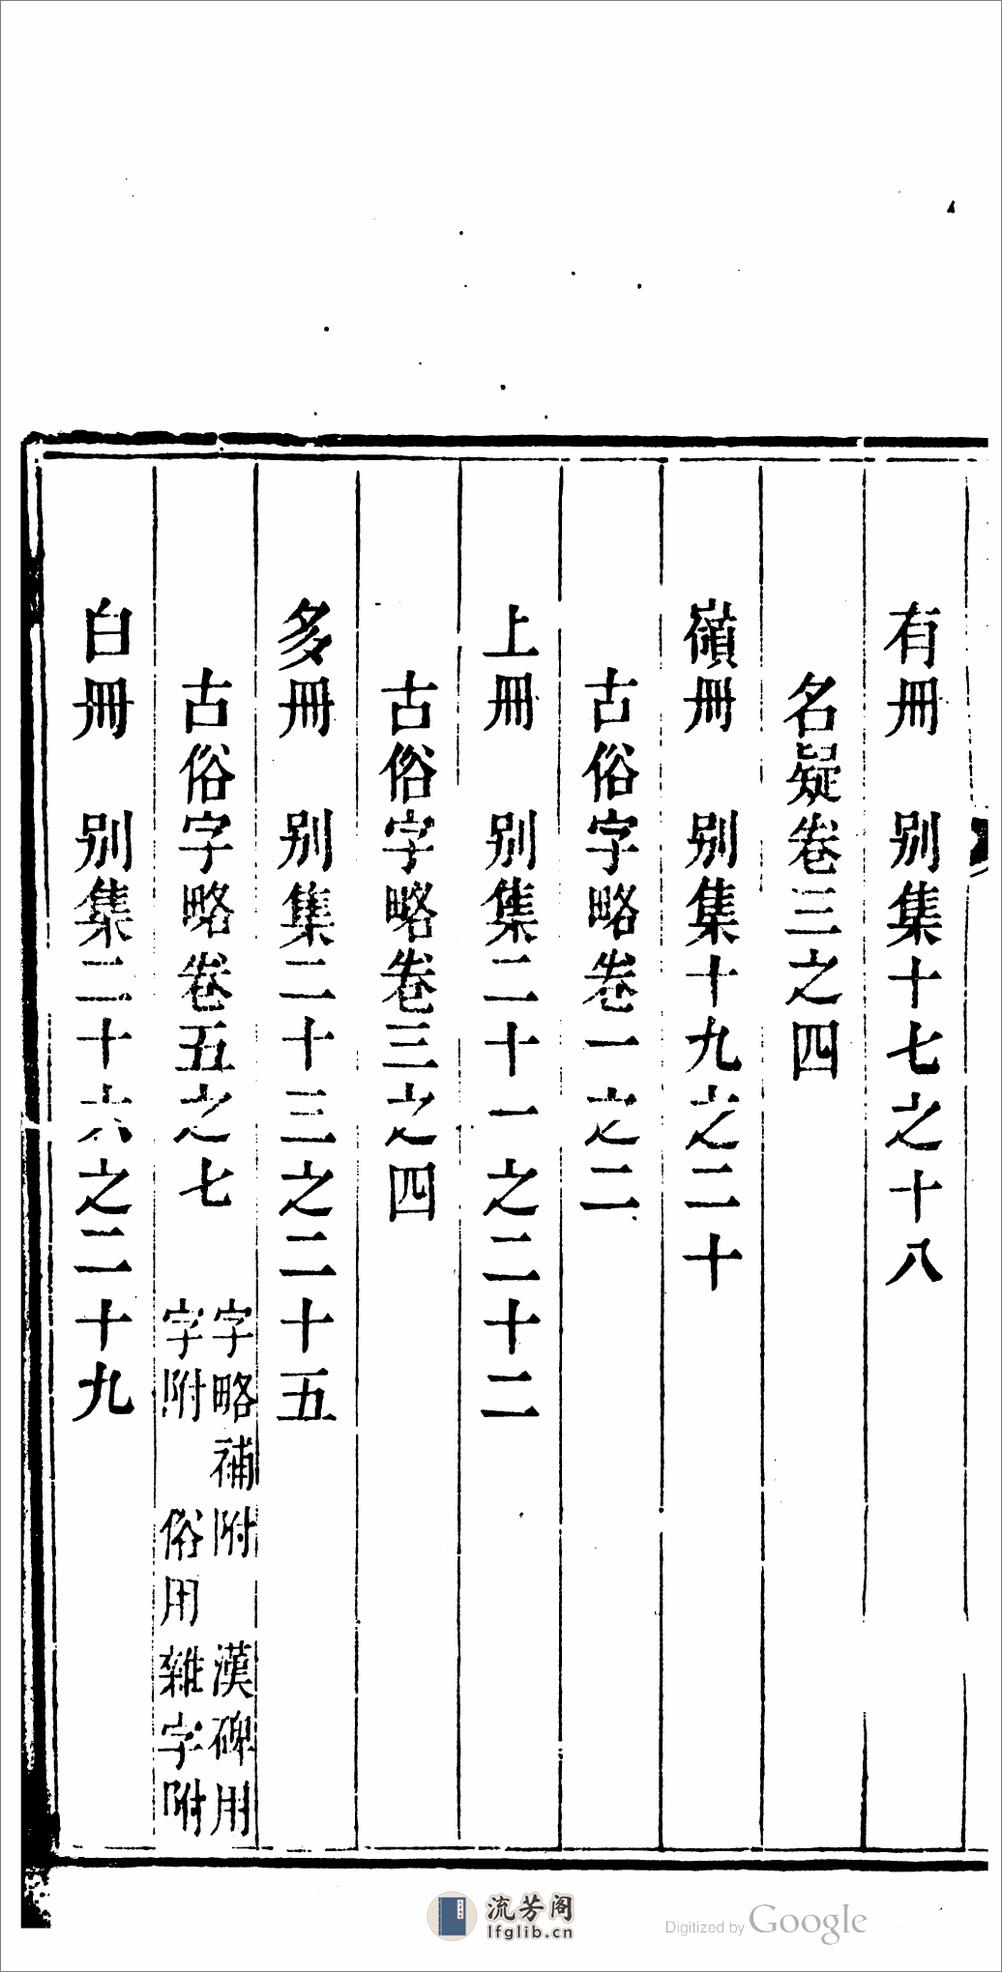 有冊　别集十七之十八
名疑卷三之四
嶺冊　别集十九之二十
古俗字略卷一之二
上冊　别集二十一之二十二
古俗字略卷三之四
多冊　别集二十三之二十五
古俗字略卷五之七　字略補附　漢碑用
字附　俗用雜字附
白冊　别集二十六之二十九
流芳阁
lfglib.cn
Digitized by Google